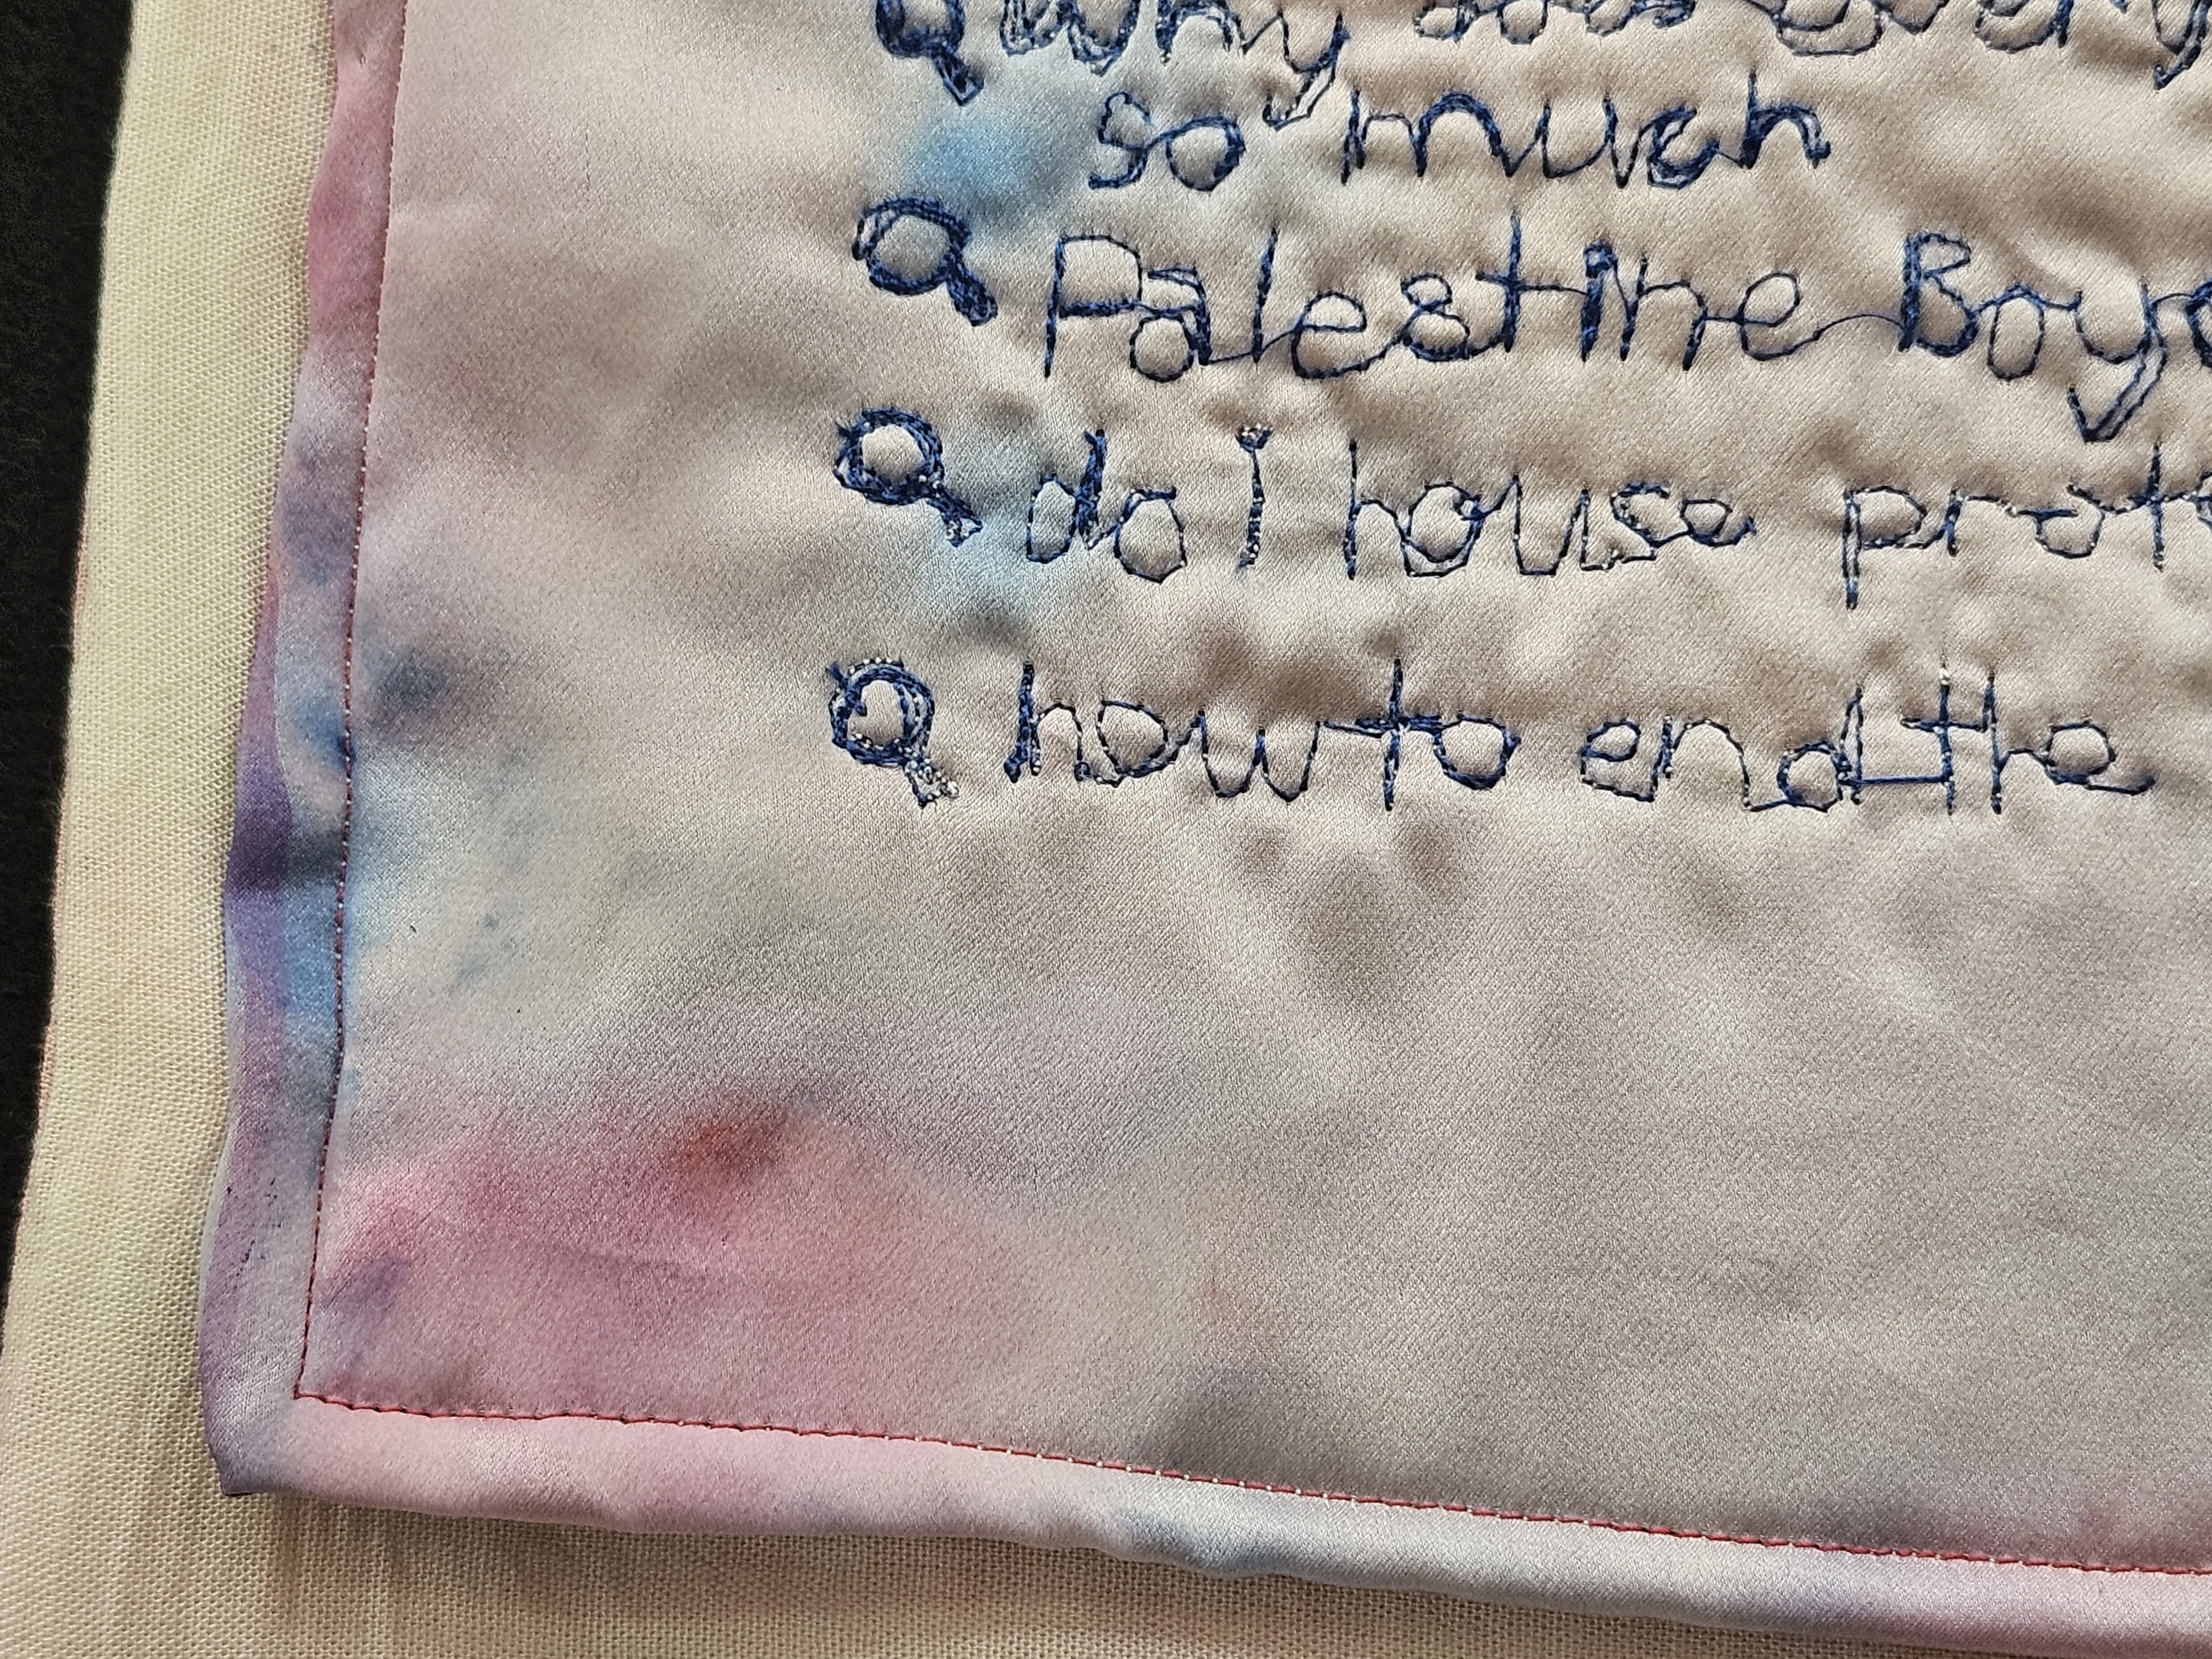 Why does every
so much
Palestine Boyc
do I house prot
how to end the